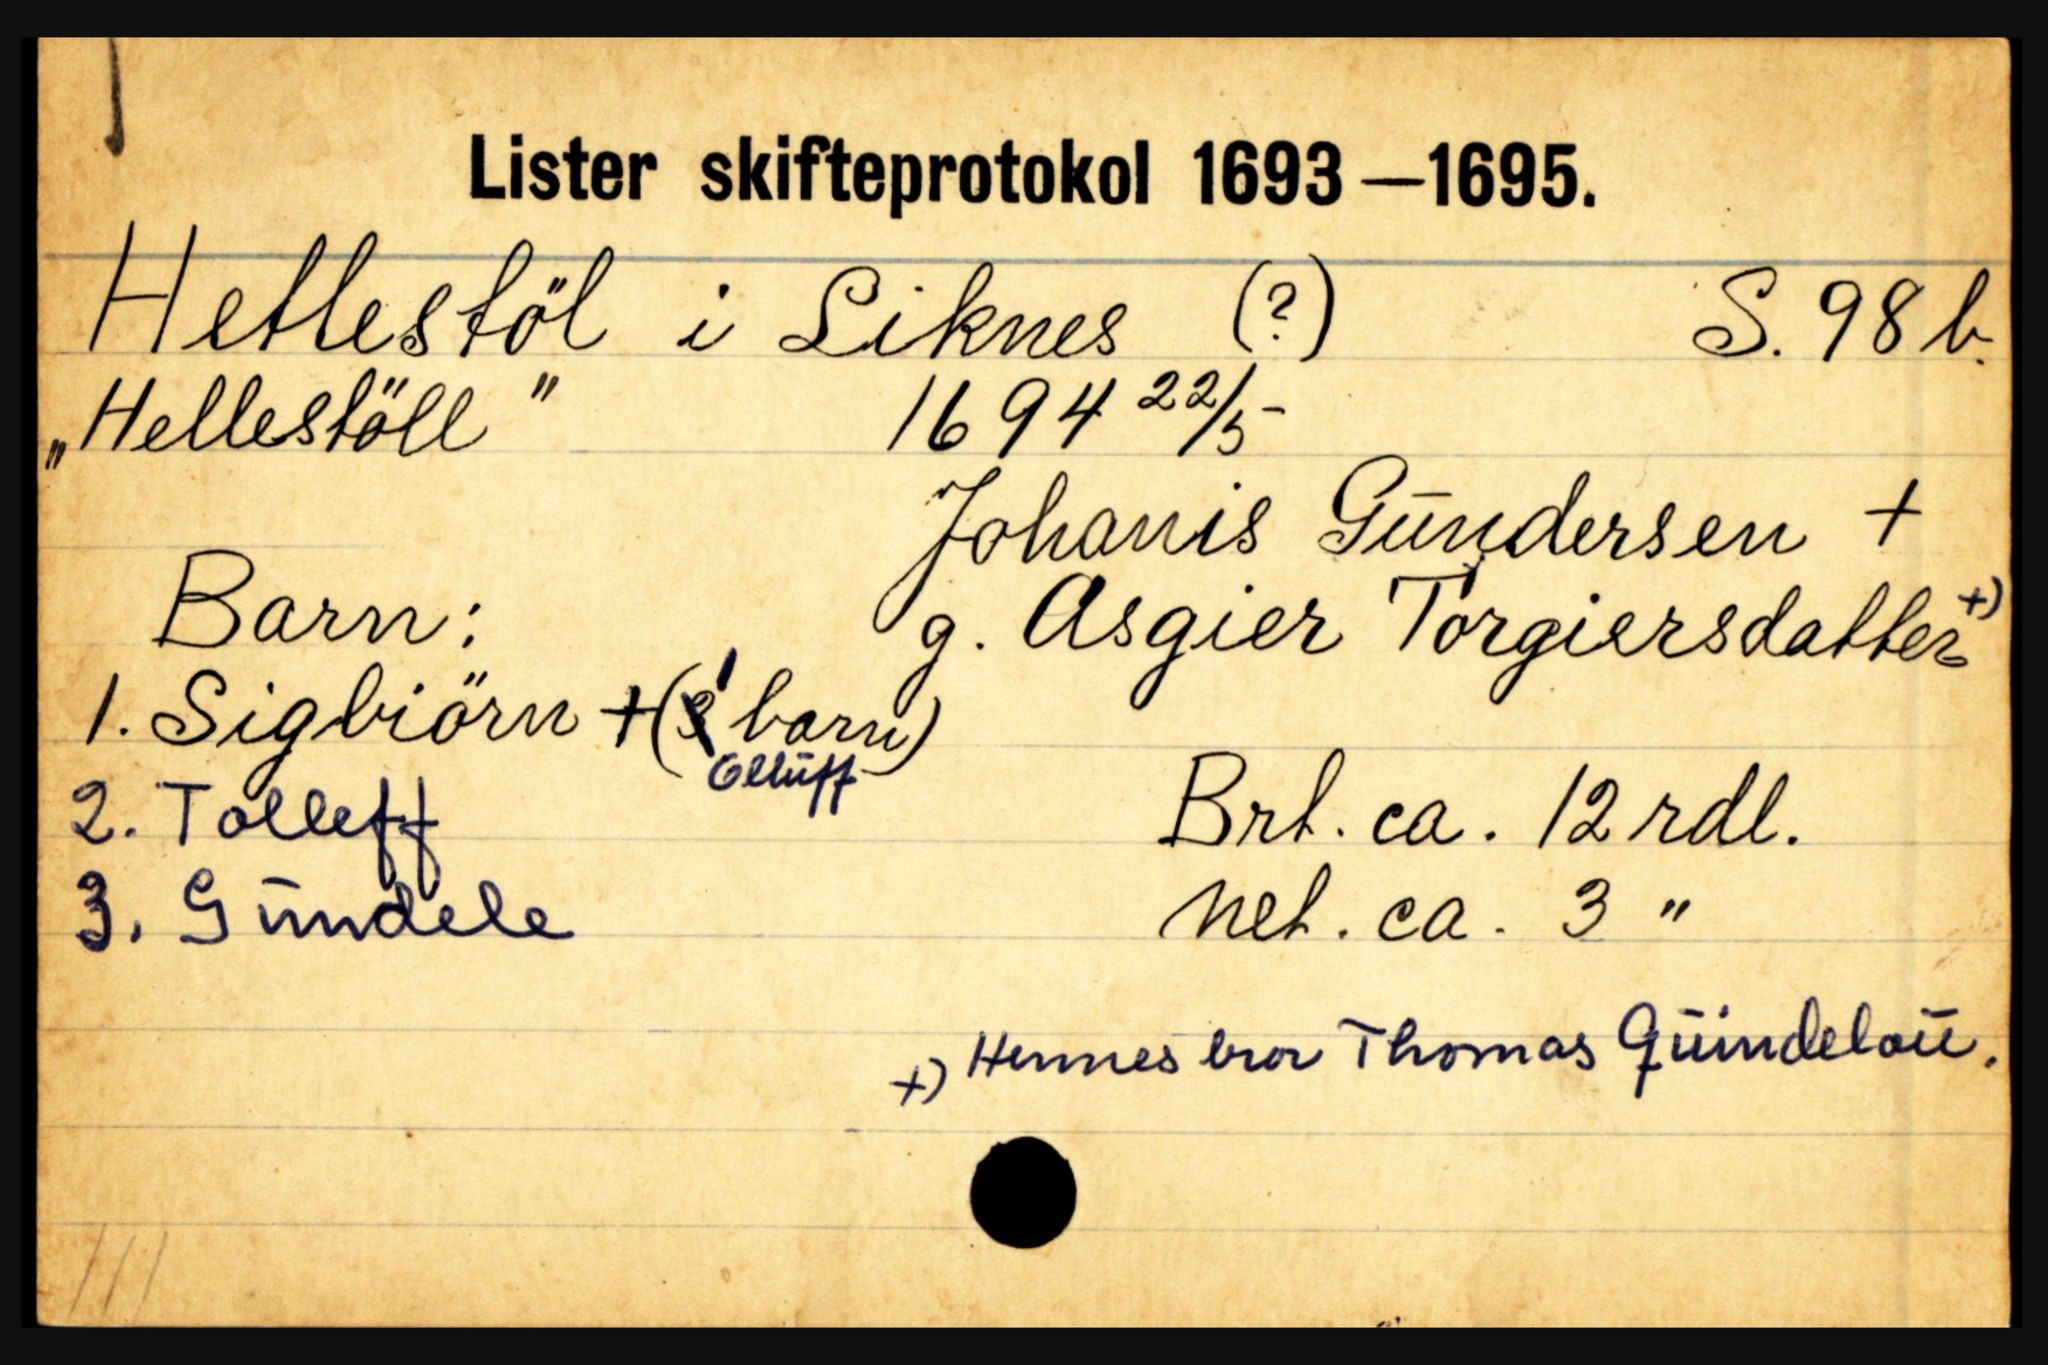 Lister skifteprotokol 1693—1695.
Hetlestöl i Liknes (?) S. 98 b.
„Hellestöll" 1694 22/5-
Johanis Gūndersen +
Barn: g. Asgier Torgiersdatter +)
1. Sigbiörn + (1 barn)
Ollūff
2. Tolleff Brt. ca. 12 rdl.
3. Gūndele Net. ca. 3 "
+) Hennes bror Thomas Qūindelaū.